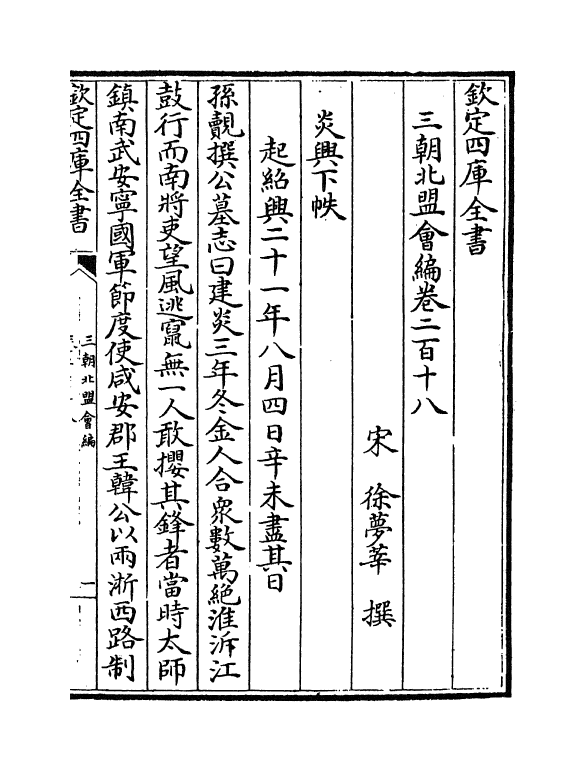 欽定四庫全書
三朝北盟會編卷二百十八
宋　徐夢莘　撰
炎興下帙
起紹興二十一年八月四日辛未盡其日
孫覿撰公墓志曰建炎三年冬金人合衆數萬絶淮泝江
鼓行而南將吏望風逃竄無一人敢攖其鋒者當時太師
鎮南武安寧國軍節度使咸安郡王韓公以兩浙西路制
欽定四庫全書
三朝北盟會編